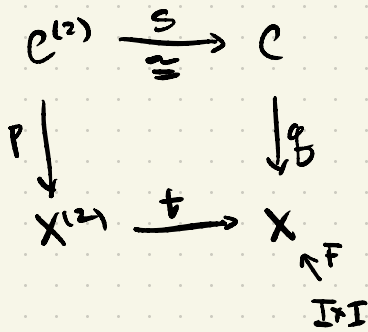 C⁽²⁾ S C
≅
p q
X⁽²⁾ t X
F
I×I